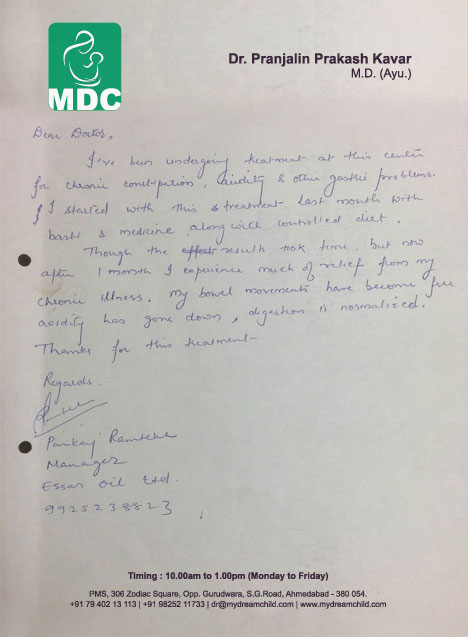 MDC
Dr. Pranjalin Prakash Kavar
M.D. (Ayu.)
Dear Doctor,
I've been undergoing treatment at this center
for chronic constipation, acidity & other gastric problems.
I started with this treatment last month with
basti & medicine along with controlled diet.
Though the effect results took time. but now
after 1 month I experience much of relief from my
chronic illness. my bowel movements have become free
acidity has gone down, digestion is normalized.
Thanks for this treatment-
Regards.
Pankaj Ramteke
Manager
Essar Oil Ltd.
9925238823
Timing : 10.00am to 1.00pm (Monday to Friday)
PMS, 306 Zodiac Square, Opp. Gurudwara, S.G.Road, Ahmedabad - 380 054.
+91 79 402 13 113 | +91 98252 11733 | dr@mydreamchild.com | www.mydreamchild.com